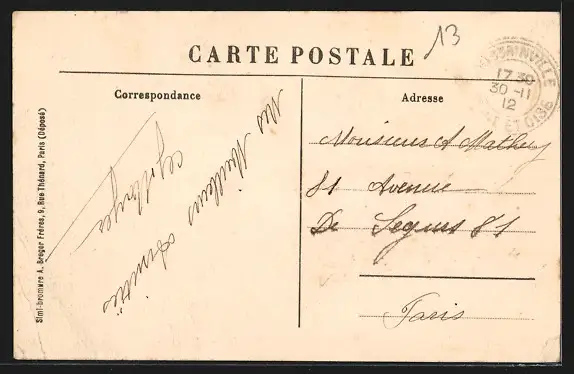 13
CARTE POSTALE
17 30
30 -11
12
ET OISE
Correspondance
Adresse
Mes Meilleurs Amitiés
Monsieur A Mathey
81 Avenue
De Segur 81
Paris
Simi-bromure A. Breger Frères, 9, Rue Thénard, Paris (Déposé)